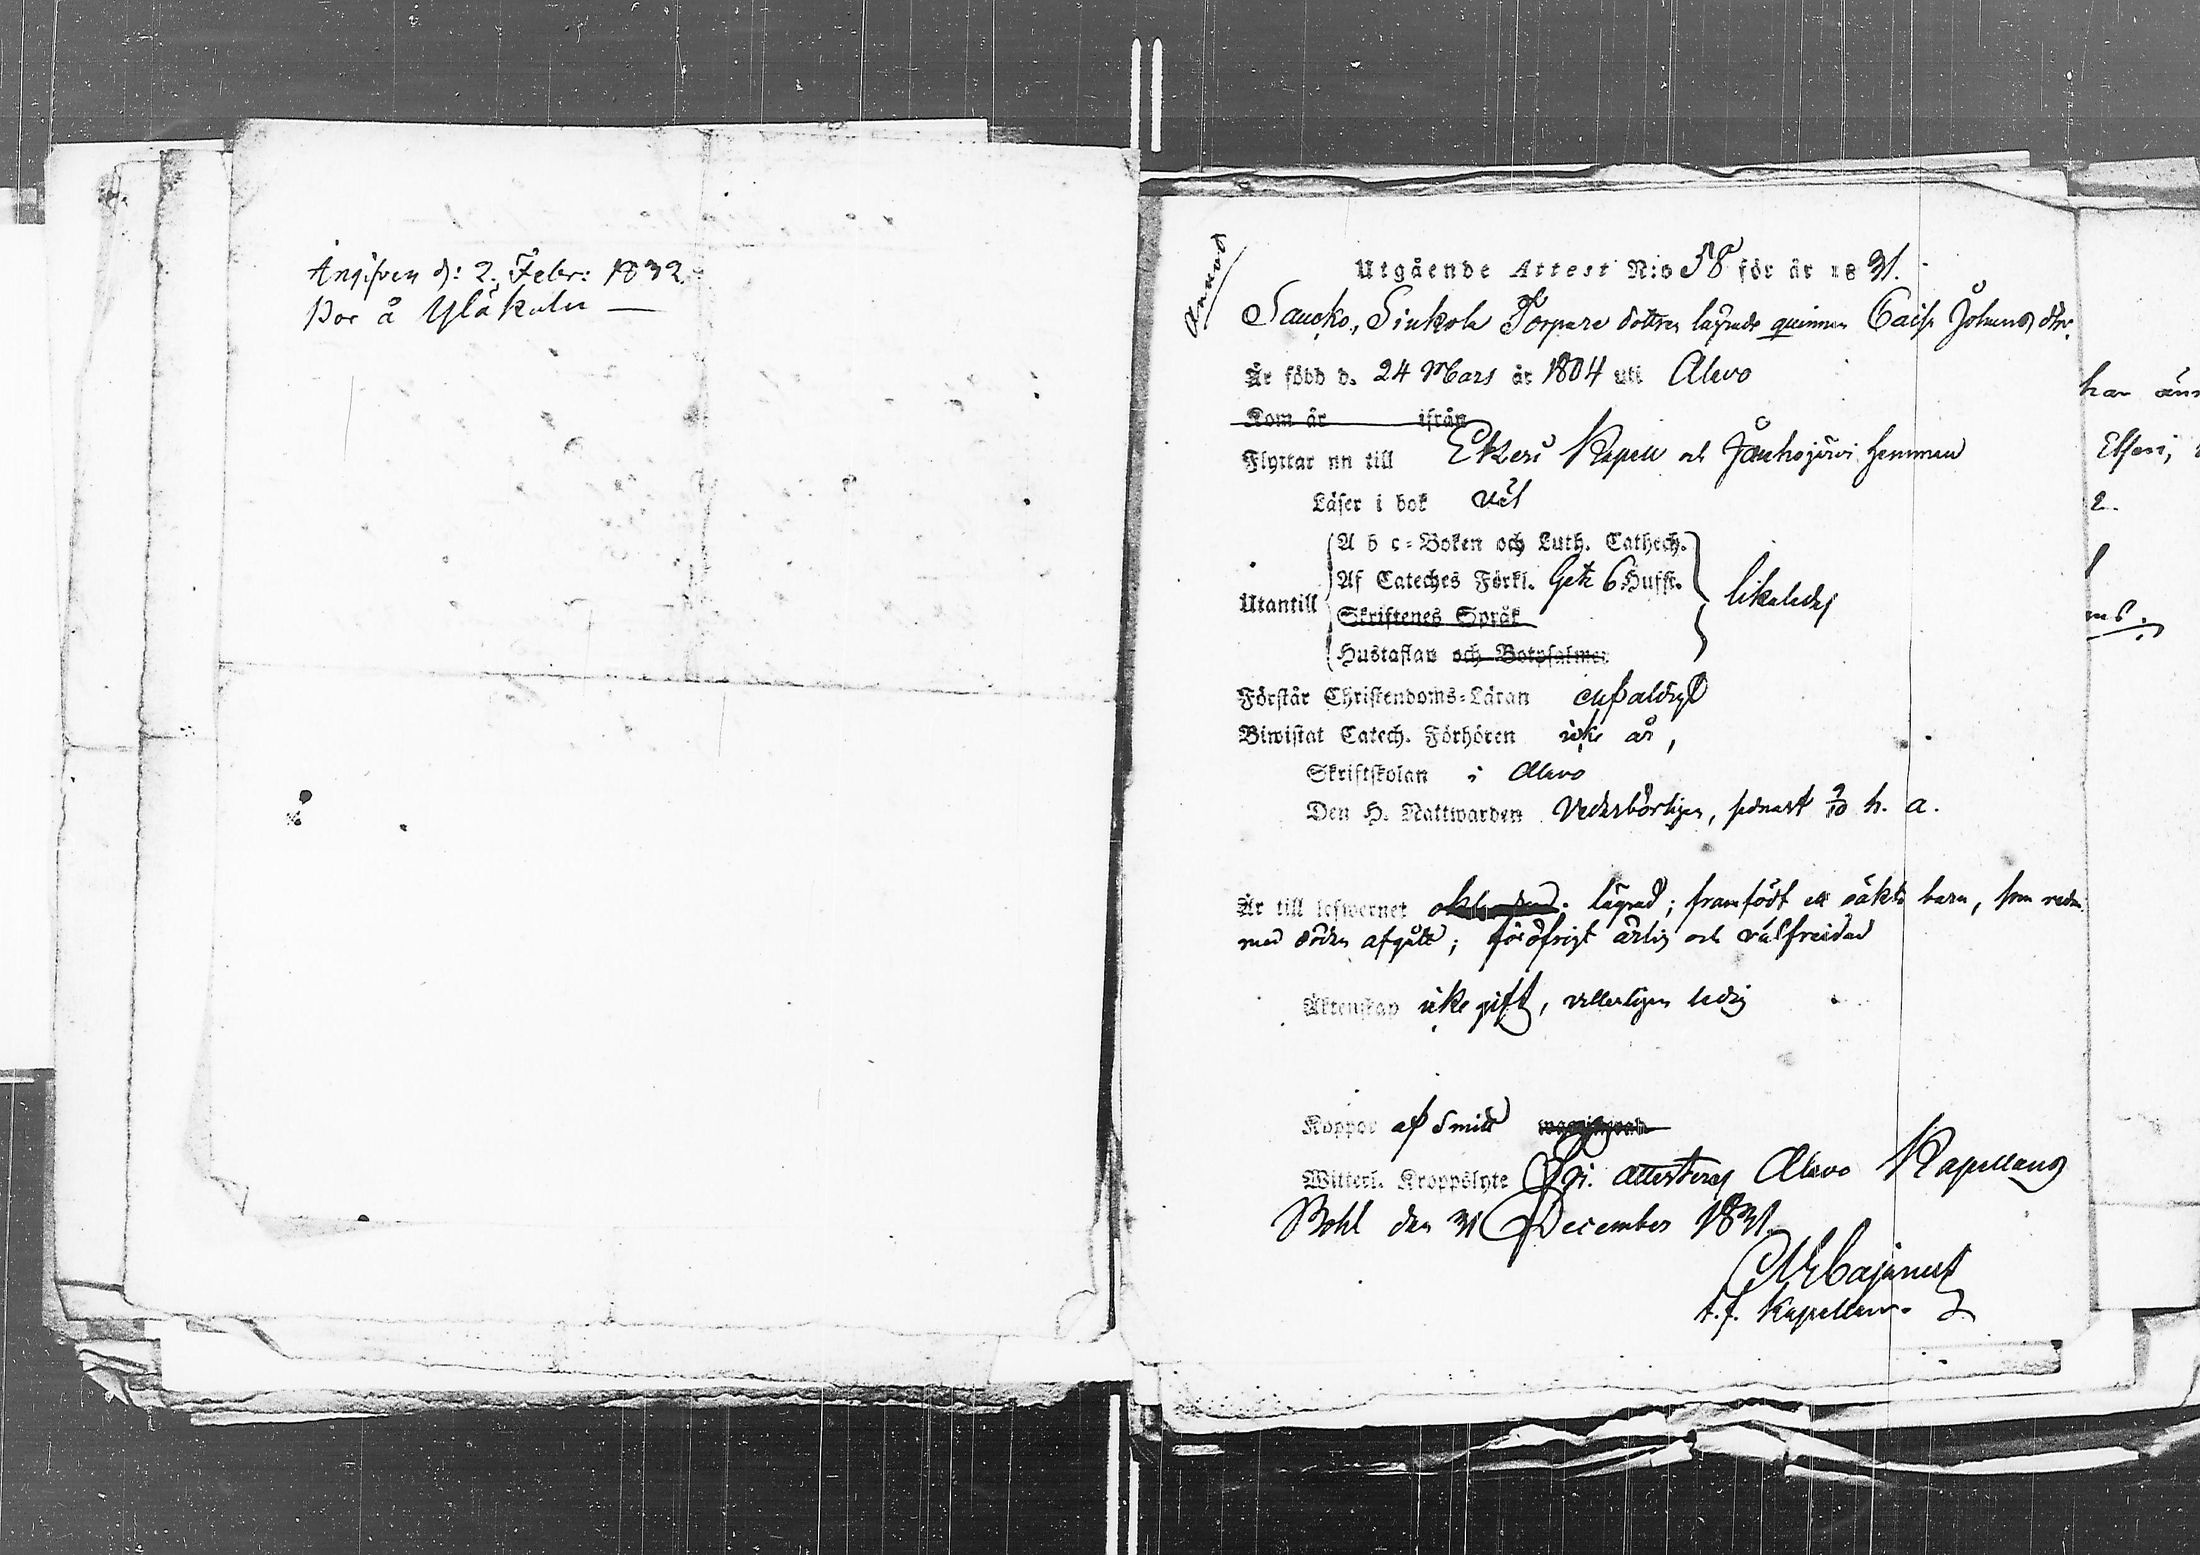 Angifven d: 2. Febr: 1832.
Bor å Yläkulu —
Utgående Attest N:o 58 för år 1831.
Saucko, Sinkola Torpare dottren lägrade quinnan Caisa Johans dtr.
Är född d. 24 Mars år 1804 uti Alavo
Kom år ifrån
Flyttar nu till Etzeri Kapell och Jänhojärvi hemman
Läser i bok väl
A b c-Boken och Luth. Cathech.
Af Cateches Förkl. 6 Hufst.
Utantill
likaledes
Skriftenes Språk
Hustaflan och Botpsalmer
Förstår Christendoms-Läran enfaldigt
Biwistat Catech. Förhören icke år,
Skriftskolan i Alavo
Den H. Nattwarden Vederbörligen, senast 2/10 h. a.
Är till lefwernet lägrad; framfödt ett oäkta barn, som redan
med döden afgått; för öfrigt ärlig och välfreidad
Äktenskap icke gift, villerligen ledig
Koppor af Smitt
Witterl. Kroppslyte attesteras Alavo Kapellans
Bohl den 31 December 1831.
Cajanus
t.f. Kapellan.
har
2.